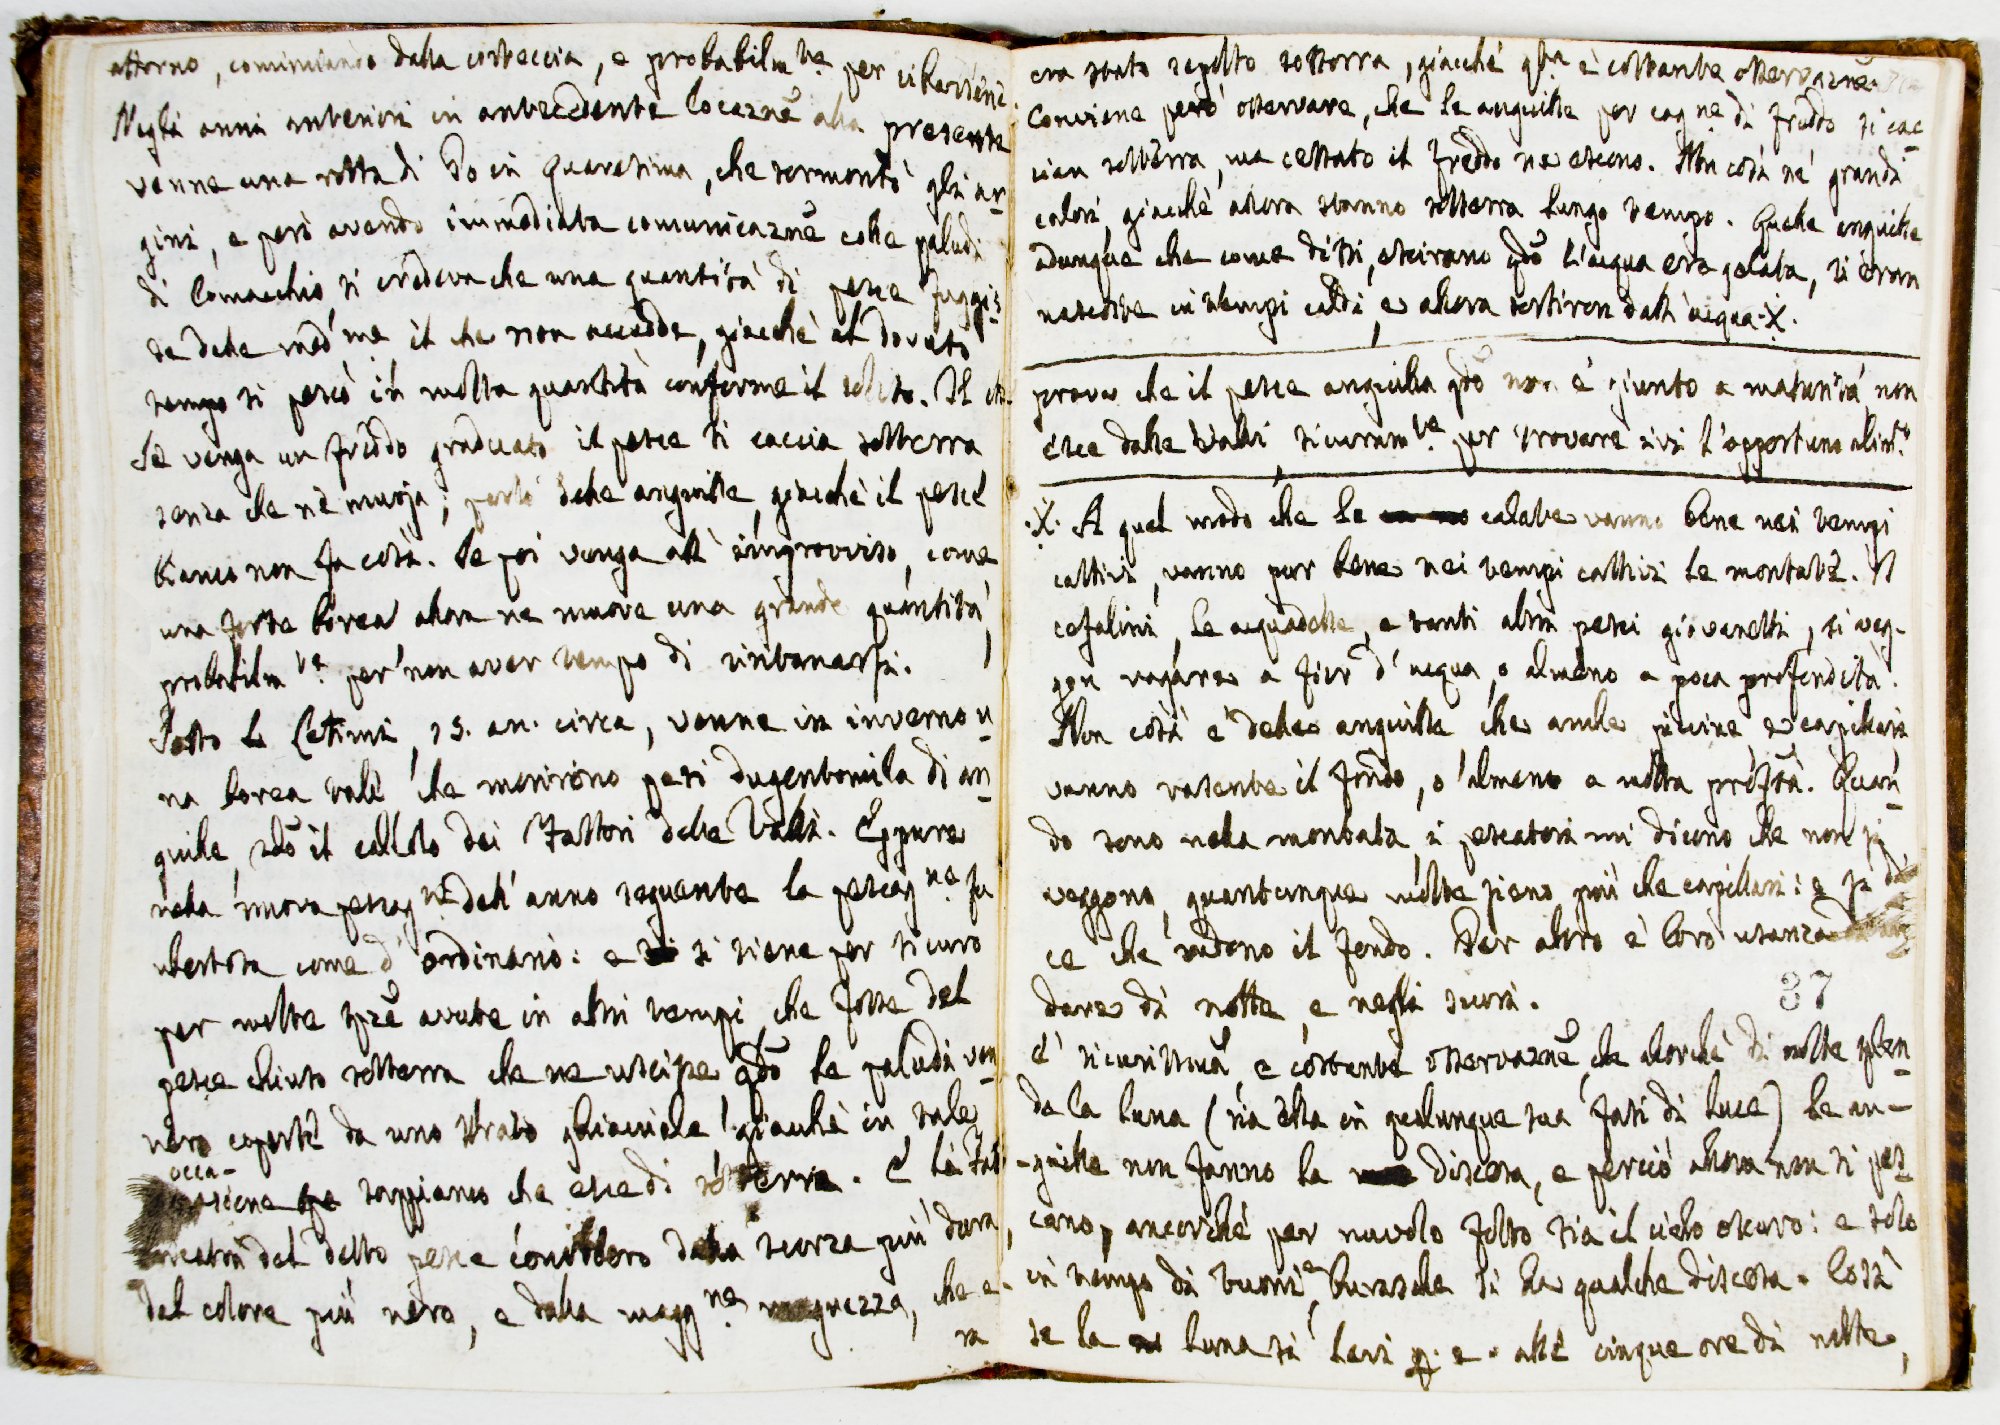 attorno, cominciando dalla corteccia, e probabilm.te per cibarsene.
Negli anni anteriori in antecedente locazne alla presente
venne una rotta di Po in quaresima, che sormontò gli ar-
gini, e però avendo immediata comunicazne colle paludi
di Comacchio si credeva che una quantità di pesce fuggis-
se dalle med.me il che non accadde, giacchè al dovuto
tempo si pescò in molta quantità conforme il solito.
Se venga un freddo graduato il pesce si caccia sotterra
senza che ne muoja; parlo delle anguille, giacchè il pesce
bianco non fa così. Se poi venga all'improvviso, come
una forte borea allora ne muore una grande quantità,
probabilm.te per non aver tempo di rintanarsi.
Sotto li 15. an. circa, venne in inverno u-
na borea tale che morirono pesi dugentomila di an-
guille, sdo il calcolo dei Fattori delle Valli. Eppure
nella nuova pescag.ne dell'anno seguente la pescag.ne fu
ubertosa come d'ordinario: e si tiene per sicuro
per molte spze avute in altri tempi, che fosse del
pesce chiuso sotterra che ne uscisse qdo le paludi ven-
nero coperte da uno strato ghiacciale giacchè in tale
occa-
sione sappiamo che esce di sotterra. E li
del detto pesce conobbero dalla scorza più dura,
dal colore più nero, e dalla magg.ne magrezza, che e-
ra
era stato sepolto sotterra, giacchè q.ta è costante osservazne.
Conviene però osservare, che le anguille per cag.ne di freddo si cac-
cian sotterra, ma cessato il freddo ne escono. Non così ne' grandi
calori, giacchè allora stanno sotterra lungo tempo. Quelle anguille
adunque che come dissi, uscirono qdo l'acqua era gelata, si eran
nascoste in tempi caldi, e allora sortiron dall'acqua .X.
prova che il pesce anguilla qdo non è giunto a maturità non
esce dalle Valli, sicuram.te per trovare ivi l'opportuno alim.to
.X. A quel modo che le calate vanno bene nei tempi
cattivi, vanno pur bene nei tempi cattivi le montate. I
cefalini, le acquadelle, e tanti altri pesci giovanetti, si veg-
gon vagare a fior d'acqua, o almeno a poca profondità.
Non così è delle anguille che anche piccine, e capillari
vanno rasente il fondo, o almeno a molta prof.tà. Quan-
do sono nella montata, i pescatori mi dicono che non si
veggono, quantunque molte sieno più che capillari: e
ce che radono il fondo. Per altro è loro usanza
dare di notte, e negli scuri.
37
E' sicurissima, e costante osservazne, che allorchè di notte splen-
de la luna (sia ella in qualunque sua fasi di luce) le an-
guille non fanno la discesa, e perciò allora non si pes-
cano, ancorchè per nuvolo folto sia il cielo oscuro: e solo
in tempo di buone burasche si ha qualche discesa. Così
se la luna si levi p. e. alle cinque ore di notte,